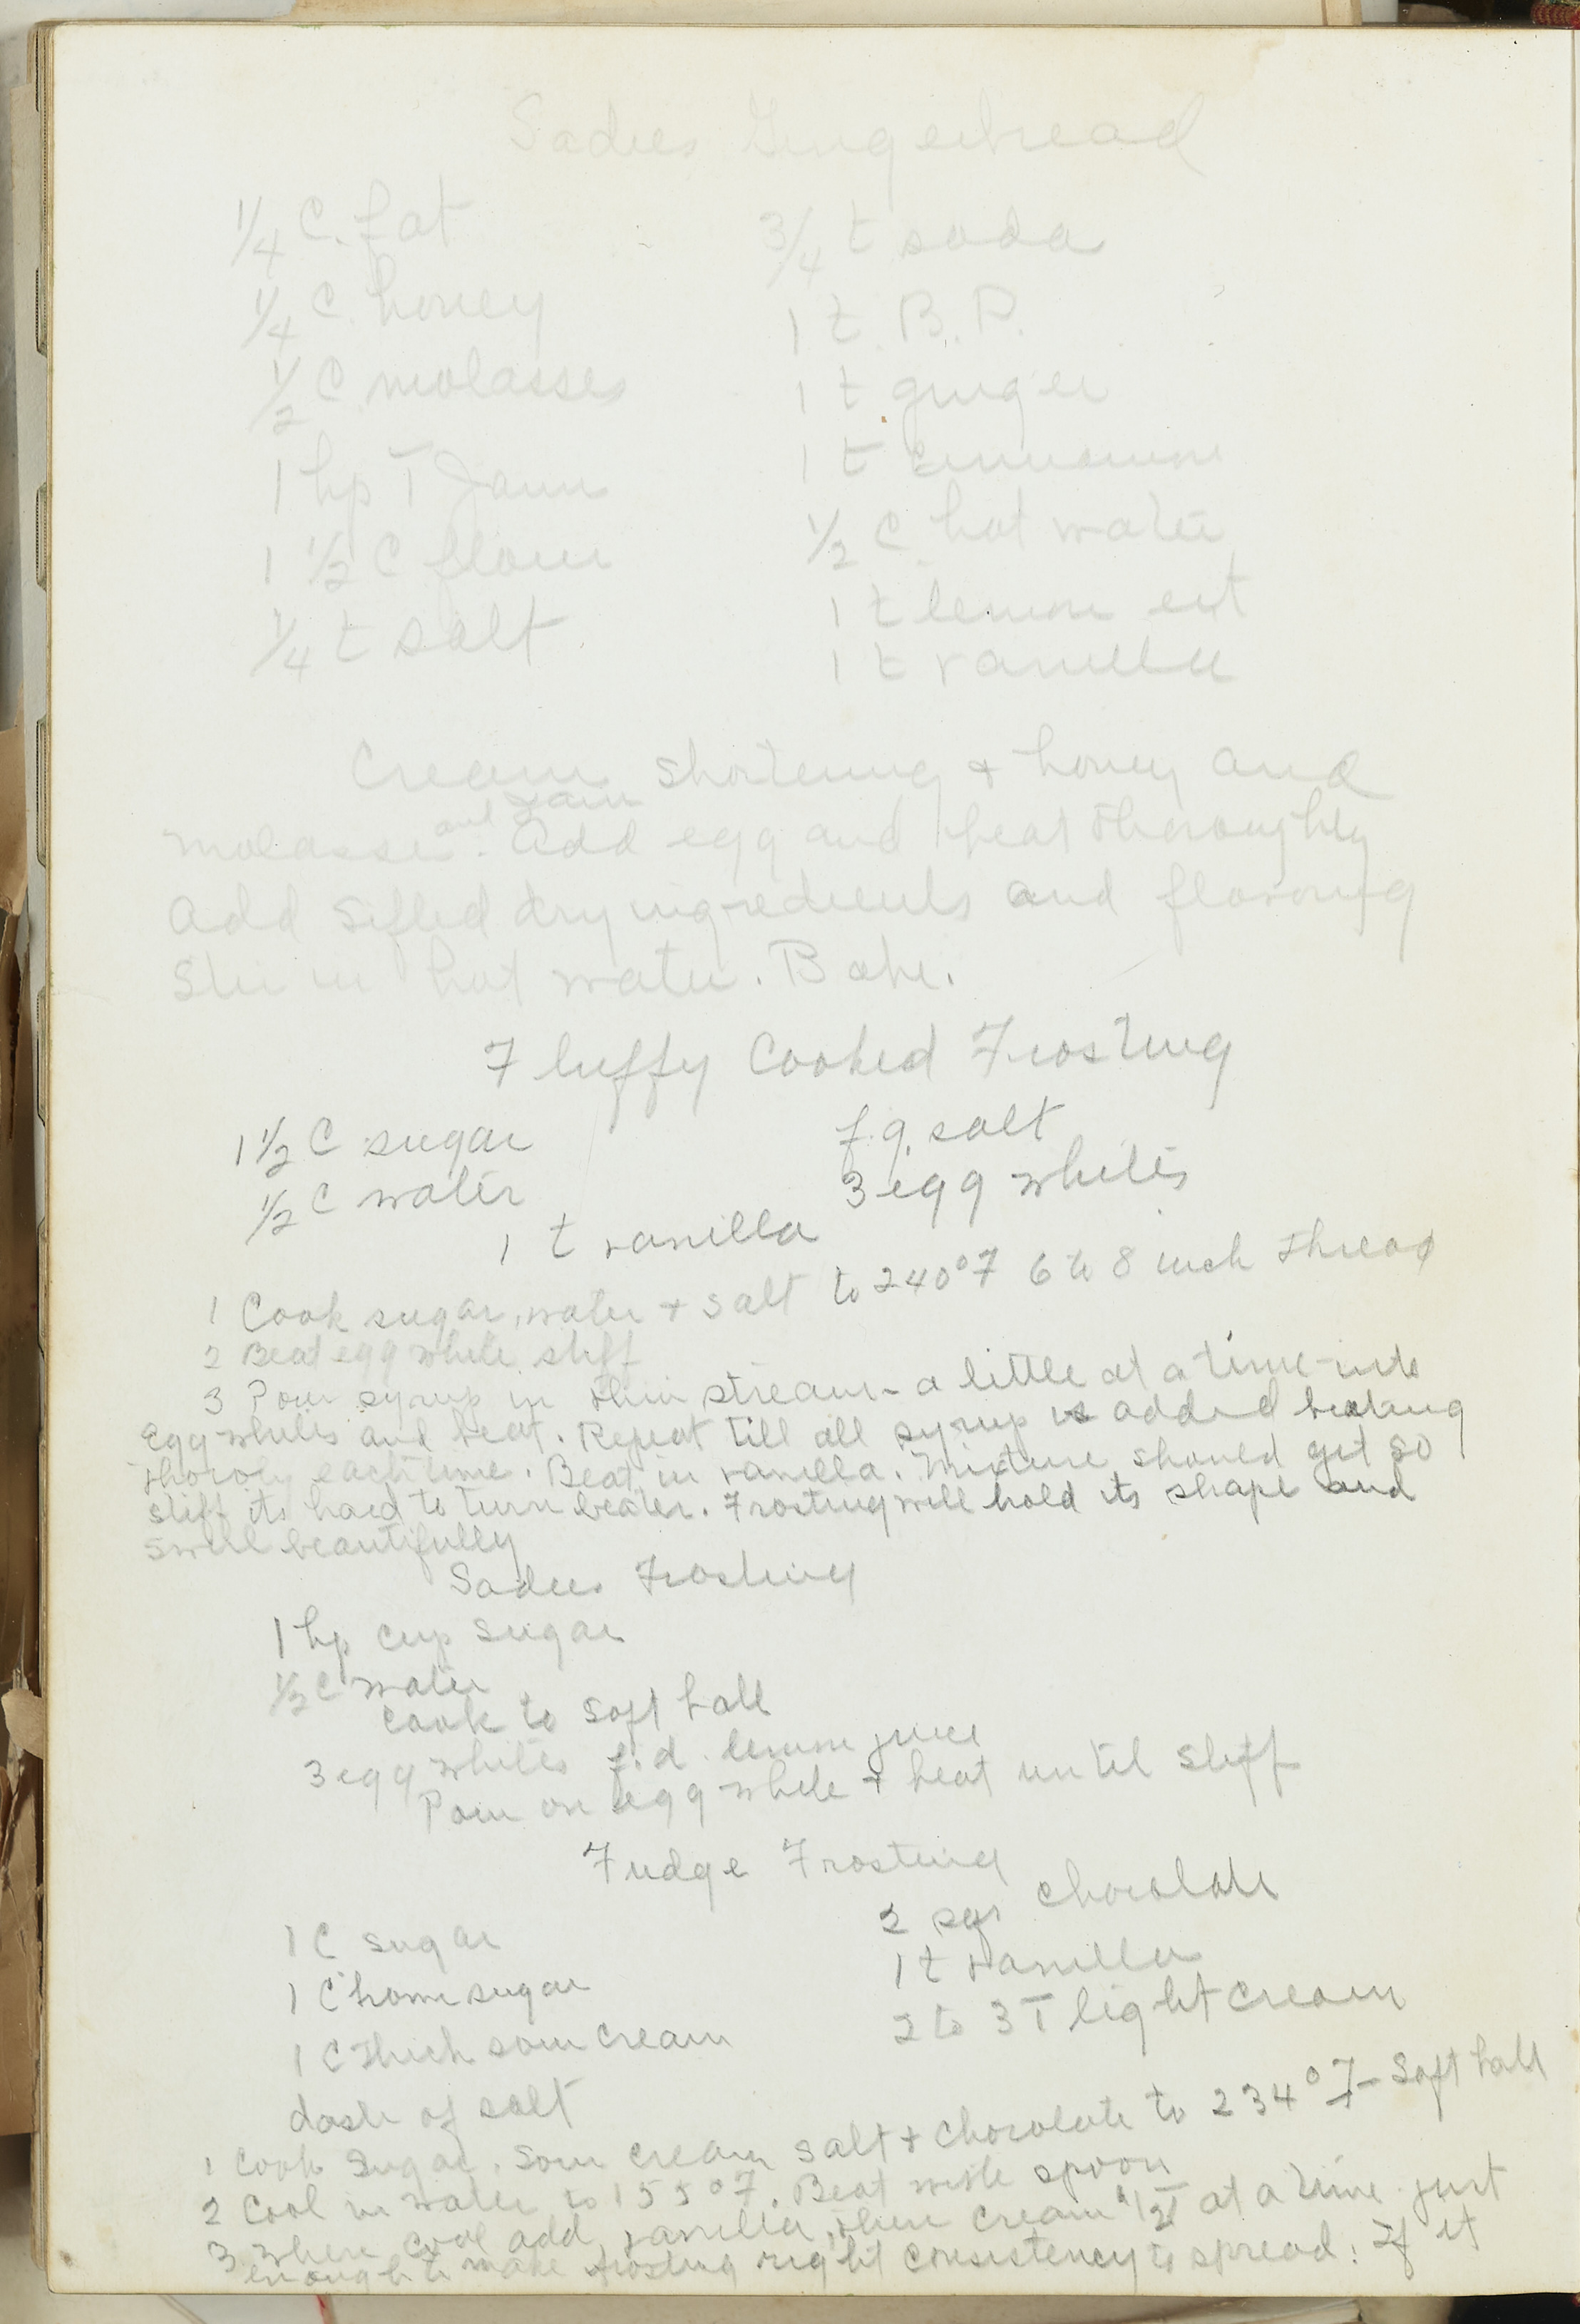 Sadies Gingerbread
1/4 C. fat
1/4 C honey
1/2 C molasses
1 hp T Jam
1 1/2 C flour
1/4 t salt
3/4 t soda
1 t. B. P.
1 t ginger
1 t cinnamon
1/2 C hot water
1 t lemon ext
1 t vanilla
Cream shortening + honey and
and Jam
molasses. Add egg and beat thoroughly
Add sifted dry ingredients and flavoring
Stir in hot water. Bake.
Fluffy Cooked Frosting
1 1/2 C sugar
1/2 C water
f.g. salt
3 egg whites
1 t vanilla
1 Cook sugar, water + salt to 240°F 6 to 8 inch thread
2 Beat egg white stiff
3 Pour syrup in thin stream - a little at a time - into
Egg whites and beat. Repeat till all syrup is added beating
thoroly each time. Beat in vanilla. Mixture should get so
stiff its hard to turn beater. Frosting will hold its shape and
swirl beautifully
Sadies Frosting
1 hp cup sugar
1/2 C water
Cook to soft ball
3 egg whites f.d. lemon juice
Pour on egg white + beat until stiff
Fudge Frosting
1 C sugar
1 C brown sugar
1 C thick sour cream
dash of salt
2 sqs chocolate
1 t vanilla
2 to 3 T light cream
1 Cook Sugar, Sour cream salt + chocolate to 234°F - Soft ball
2 Cool in water to 155°F. Beat with spoon
3 When cool add vanilla, then cream 1/2 T at a time just
enough to make frosting right consistency to spread. If it